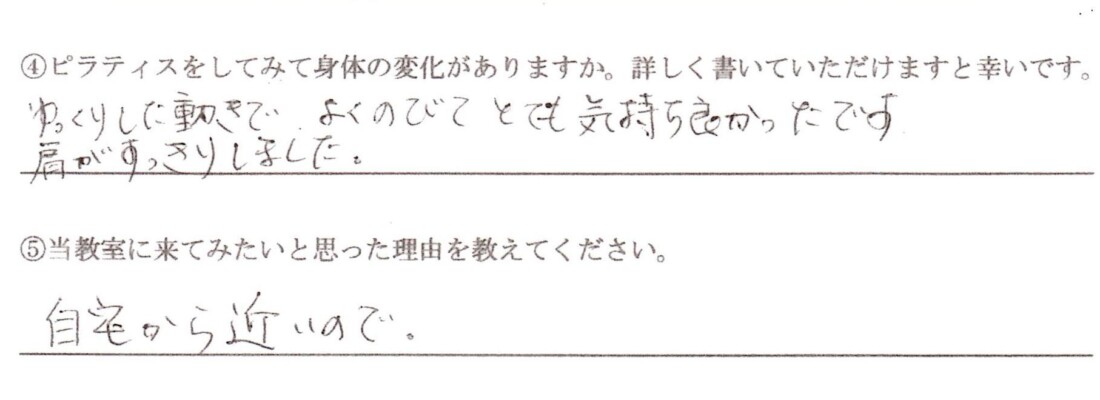 ④ピラティスをしてみて身体の変化がありますか。詳しく書いていただけますと幸いです。
ゆっくりした動きで よくのびて とても気持ち良かったです
肩がすっきりしました。
⑤当教室に来てみたいと思った理由を教えてください。
自宅から近いので。